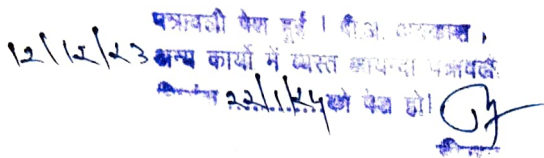 पत्रावली पेश हुई । पी.अ. अवकाश,
12/12/23 अन्य कार्यो में व्यस्त पत्रावली
दिनांक 22/1/24 को पेश हो।